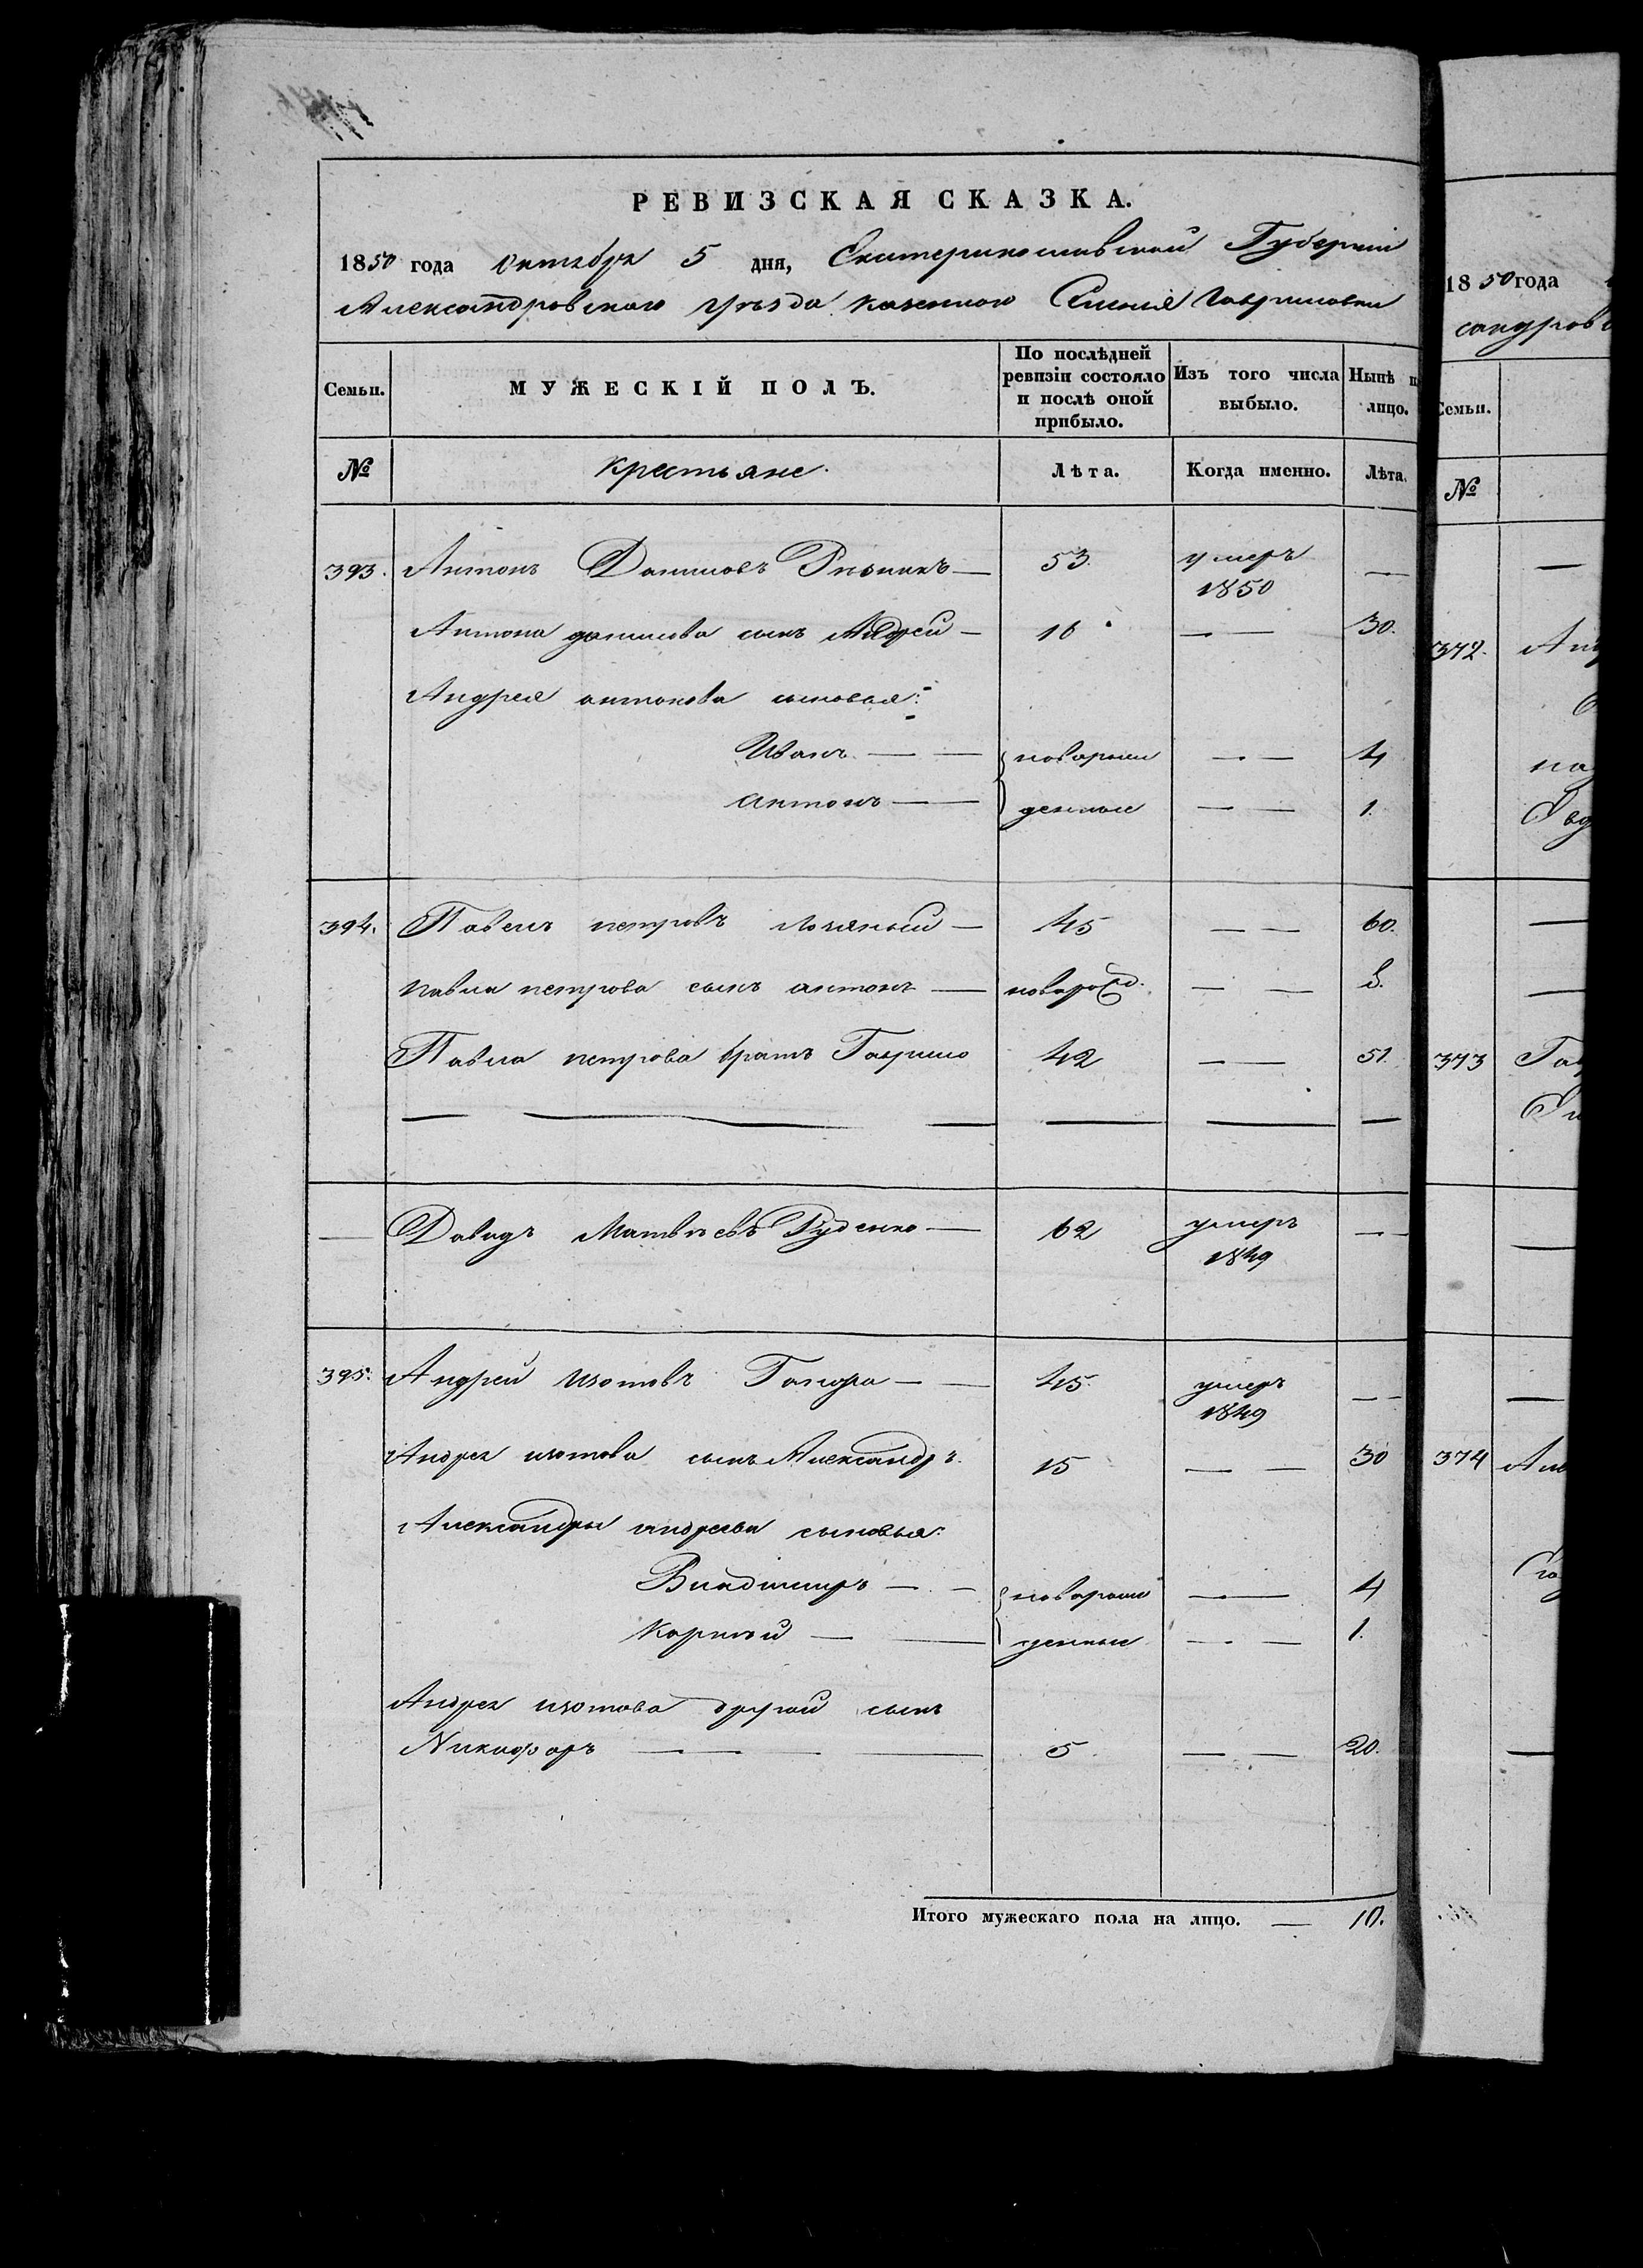 РЕВИЗСКАЯ СКАЗКА.
1850 года октября 5 дня, Екатеринославской Губерніи
Александровскаго Уѣзда казенного Селенія Гавриловки
Семьи. МУЖЕСКІЙ ПОЛЪ. По послѣдней ревизіи состояло и послѣ оной прибыло. Изъ того числа выбыло. Нынѣ н лицо.
№ Крестьяне. Лѣта. Когда именно. Лѣта.
393. Антонъ Даниловъ Рѣзникъ — 53. умеръ 1850 —
Антона данилова сынъ Андрей — 16 — 30.
Андрея антонова сыновья:
Иванъ — новорож — 4
антонъ — денные — 1.
394. Павелъ петровъ — 45 — 60.
павла петрова сынъ антонъ — новорожд. —
Павла петрова братъ Гаврило 42 — 51.
— Давидъ Матвѣевъ Руденко — 62 умеръ 1849 —
395. Андрей изотовъ Ганжра — 45. умеръ 1849 —
Андрея изотова сынъ Александръ 15 — 30
Александры андреева сыновья:
Владимиръ — новорож — 4
Корнѣй — денные — 1.
Андрея изотова другой сынъ
Никифоръ — 5 — 20.
Итого мужескаго пола на лицо. — 10.
1850 года
сандров
Семьи.
№
372.
373
374